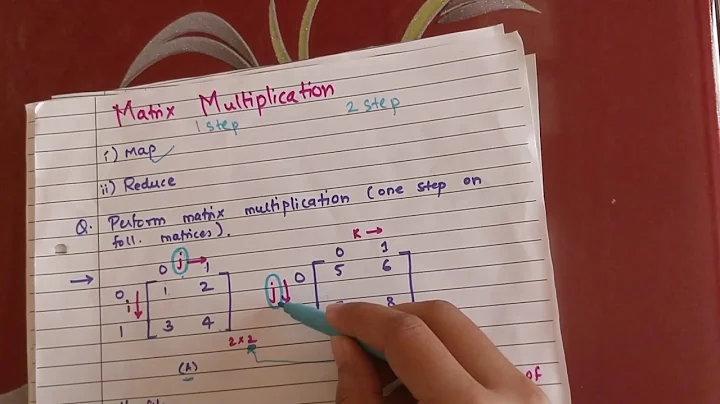 Matrix Multiplication
1 step 2 step
i) Map ✓
ii) Reduce
Q. Perform matrix multiplication (one step on
foll. matrices).
K →
0 j → 1 0 1
0 1 2 j ↓ 0 5 6
i ↓
1 3 4 8
2×2
(A)
of